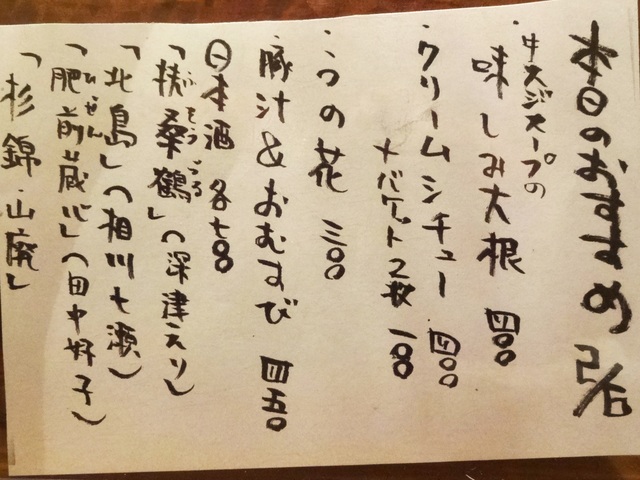 本日のおすすめ
・牛スジスープの
味しみ大根 四〇〇
・クリームシチュー 四〇〇
+バゲット2枚 一〇〇
・うの花 三〇〇
・豚汁&おむすび 四五〇
日本酒 各七〇〇
「扶桑鶴」(深津えり)
ふそうづる
「北島」(相川七瀬)
「肥前蔵心」(田中好子)
ひぜん
「杉錦・山廃」